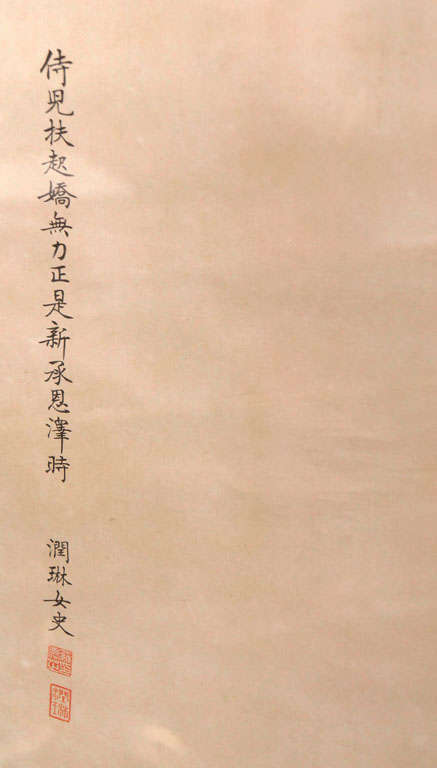 侍兒扶起嬌無力正是新承恩澤時
潤琳女史